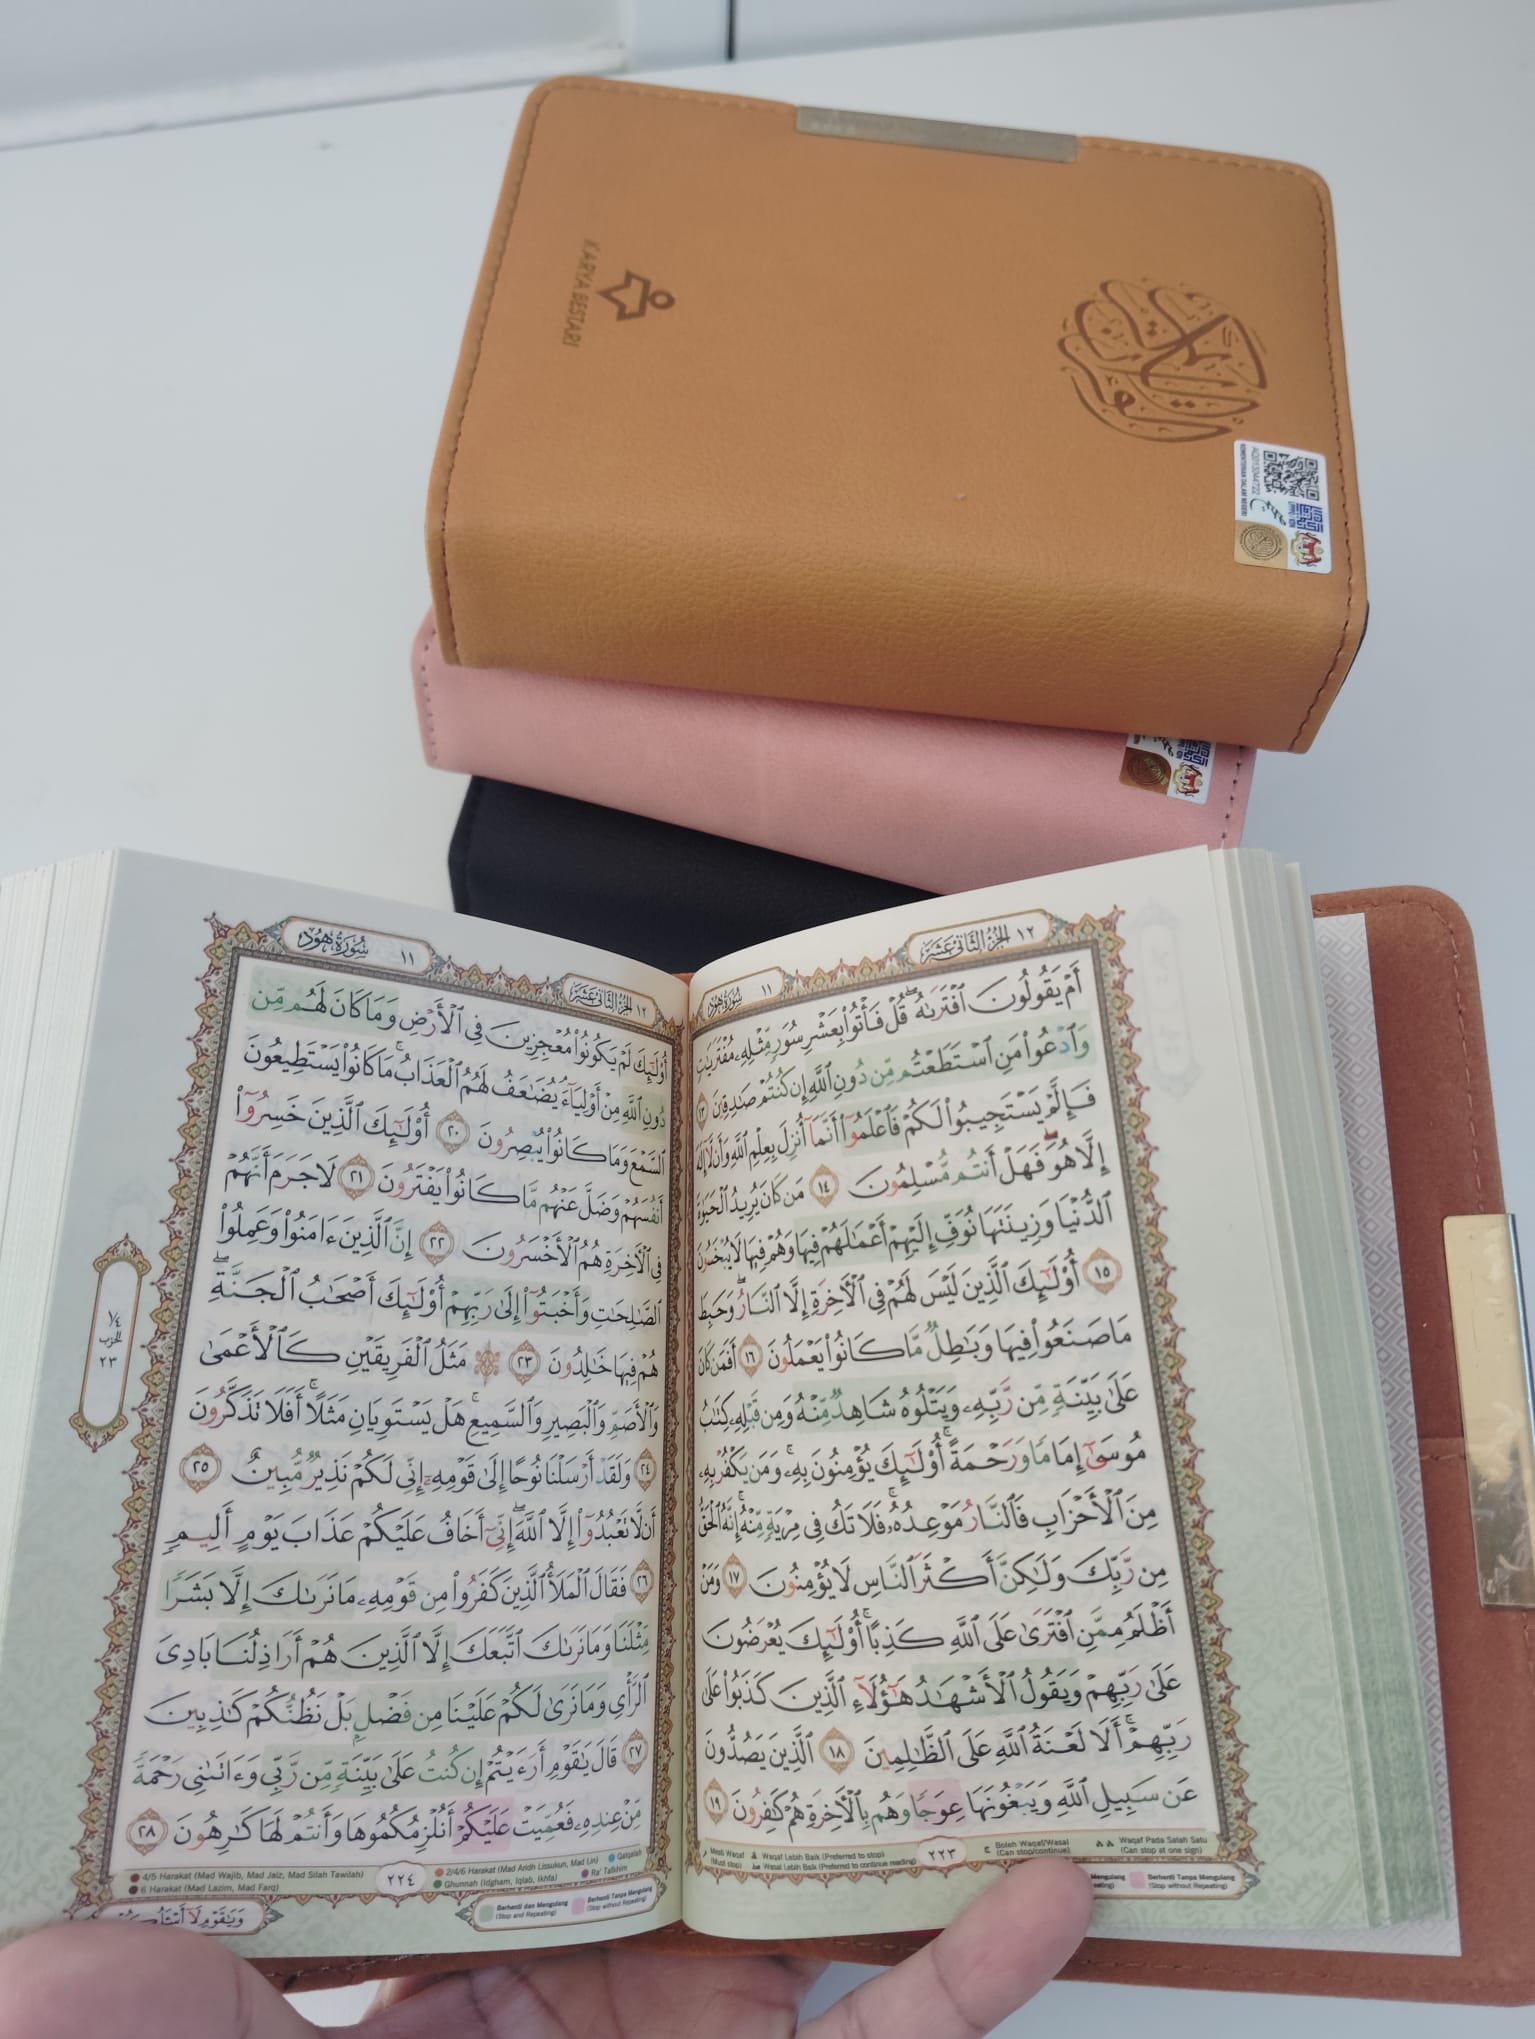 KARYA BESTARI
القرءان الكريم
AQ2013044722
KEMENTERIAN DALAM NEGERI
١٢ الجزء الثاني عشر
١١ سورة هود
أَمْ يَقُولُونَ ٱفْتَرَىٰهُ ۖ قُلْ فَأْتُوا۟ بِعَشْرِ سُوَرٍ مِّثْلِهِۦ مُفْتَرَيَٰتٍ
وَٱدْعُوا۟ مَنِ ٱسْتَطَعْتُم مِّن دُونِ ٱللَّهِ إِن كُنتُمْ صَٰدِقِينَ ١٣
فَإِلَّمْ يَسْتَجِيبُوا۟ لَكُمْ فَٱعْلَمُوٓا۟ أَنَّمَآ أُنزِلَ بِعِلْمِ ٱللَّهِ وَأَن لَّآ إِلَٰهَ
إِلَّا هُوَ ۖ فَهَلْ أَنتُم مُّسْلِمُونَ ١٤ مَن كَانَ يُرِيدُ ٱلْحَيَوٰةَ
ٱلدُّنْيَا وَزِينَتَهَا نُوَفِّ إِلَيْهِمْ أَعْمَٰلَهُمْ فِيهَا وَهُمْ فِيهَا لَا يُبْخَسُونَ
١٥ أُو۟لَٰٓئِكَ ٱلَّذِينَ لَيْسَ لَهُمْ فِى ٱلْءَاخِرَةِ إِلَّا ٱلنَّارُ ۖ وَحَبِطَ
مَا صَنَعُوا۟ فِيهَا وَبَٰطِلٌ مَّا كَانُوا۟ يَعْمَلُونَ ١٦ أَفَمَن كَانَ
عَلَىٰ بَيِّنَةٍ مِّن رَّبِّهِۦ وَيَتْلُوهُ شَاهِدٌ مِّنْهُ وَمِن قَبْلِهِۦ كِتَٰبُ
مُوسَىٰٓ إِمَامًا وَرَحْمَةً ۚ أُو۟لَٰٓئِكَ يُؤْمِنُونَ بِهِۦ ۚ وَمَن يَكْفُرْ بِهِۦ
مِنَ ٱلْأَحْزَابِ فَٱلنَّارُ مَوْعِدُهُۥ ۚ فَلَا تَكُ فِى مِرْيَةٍ مِّنْهُ ۚ إِنَّهُ ٱلْحَقُّ
مِن رَّبِّكَ وَلَٰكِنَّ أَكْثَرَ ٱلنَّاسِ لَا يُؤْمِنُونَ ١٧ وَمَنْ
أَظْلَمُ مِمَّنِ ٱفْتَرَىٰ عَلَى ٱللَّهِ كَذِبًا ۚ أُو۟لَٰٓئِكَ يُعْرَضُونَ
عَلَىٰ رَبِّهِمْ وَيَقُولُ ٱلْأَشْهَٰدُ هَٰٓؤُلَآءِ ٱلَّذِينَ كَذَبُوا۟ عَلَىٰ
رَبِّهِمْ ۚ أَلَا لَعْنَةُ ٱللَّهِ عَلَى ٱلظَّٰلِمِينَ ١٨ ٱلَّذِينَ يَصُدُّونَ
عَن سَبِيلِ ٱللَّهِ وَيَبْغُونَهَا عِوَجًا وَهُم بِٱلْءَاخِرَةِ هُمْ كَٰفِرُونَ ١٩
Mesti Waqaf (Must stop)
Waqaf Lebih Baik (Preferred to stop)
Wasal Lebih Baik (Preferred to continue reading)
٢٢٣
Boleh Waqaf/Wasal (Can stop/continue)
Waqaf Pada Salah Satu (Can stop at one sign)
Berhenti Tanpa Mengulang (Stop without Repeating)
١١ سورة هود
١٢ الجزء الثاني عشر
أُو۟لَٰٓئِكَ لَمْ يَكُونُوا۟ مُعْجِزِينَ فِى ٱلْأَرْضِ وَمَا كَانَ لَهُم مِّن
دُونِ ٱللَّهِ مِنْ أَوْلِيَآءَ ۘ يُضَٰعَفُ لَهُمُ ٱلْعَذَابُ ۚ مَا كَانُوا۟ يَسْتَطِيعُونَ
ٱلسَّمْعَ وَمَا كَانُوا۟ يُبْصِرُونَ ٢٠ أُو۟لَٰٓئِكَ ٱلَّذِينَ خَسِرُوٓا۟
أَنفُسَهُمْ وَضَلَّ عَنْهُم مَّا كَانُوا۟ يَفْتَرُونَ ٢١ لَا جَرَمَ أَنَّهُمْ
فِى ٱلْءَاخِرَةِ هُمُ ٱلْأَخْسَرُونَ ٢٢ إِنَّ ٱلَّذِينَ ءَامَنُوا۟ وَعَمِلُوا۟
ٱلصَّٰلِحَٰتِ وَأَخْبَتُوٓا۟ إِلَىٰ رَبِّهِمْ أُو۟لَٰٓئِكَ أَصْحَٰبُ ٱلْجَنَّةِ ۖ
هُمْ فِيهَا خَٰلِدُونَ ٢٣ ۞ مَثَلُ ٱلْفَرِيقَيْنِ كَٱلْأَعْمَىٰ
وَٱلْأَصَمِّ وَٱلْبَصِيرِ وَٱلسَّمِيعِ ۚ هَلْ يَسْتَوِيَانِ مَثَلًا ۚ أَفَلَا تَذَكَّرُونَ
٢٤ وَلَقَدْ أَرْسَلْنَا نُوحًا إِلَىٰ قَوْمِهِۦٓ إِنِّى لَكُمْ نَذِيرٌ مُّبِينٌ ٢٥
أَن لَّا تَعْبُدُوٓا۟ إِلَّا ٱللَّهَ ۖ إِنِّىٓ أَخَافُ عَلَيْكُمْ عَذَابَ يَوْمٍ أَلِيمٍ
٢٦ فَقَالَ ٱلْمَلَأُ ٱلَّذِينَ كَفَرُوا۟ مِن قَوْمِهِۦ مَا نَرَىٰكَ إِلَّا بَشَرًا
مِّثْلَنَا وَمَا نَرَىٰكَ ٱتَّبَعَكَ إِلَّا ٱلَّذِينَ هُمْ أَرَاذِلُنَا بَادِىَ
ٱلرَّأْىِ وَمَا نَرَىٰ لَكُمْ عَلَيْنَا مِن فَضْلٍۭ بَلْ نَظُنُّكُمْ كَٰذِبِينَ
٢٧ قَالَ يَٰقَوْمِ أَرَءَيْتُمْ إِن كُنتُ عَلَىٰ بَيِّنَةٍ مِّن رَّبِّى وَءَاتَىٰنِى رَحْمَةً
مِّنْ عِندِهِۦ فَعُمِّيَتْ عَلَيْكُمْ أَنُلْزِمُكُمُوهَا وَأَنتُمْ لَهَا كَٰرِهُونَ ٢٨
١/٤
الحزب
٢٣
4/5 Harakat (Mad Wajib, Mad Jaiz, Mad Silah Tawilah)
6 Harakat (Mad Lazim, Mad Farq)
٢٢٤
2/4/6 Harakat (Mad Aridh Lissukun, Mad Lin)
Qalqalah
Ghunnah (Idgham, Iqlab, Ikhfa)
Ra' Tafkhim
Berhenti dan Mengulang (Stop and Repeating)
Berhenti Tanpa Mengulang (Stop without Repeating)